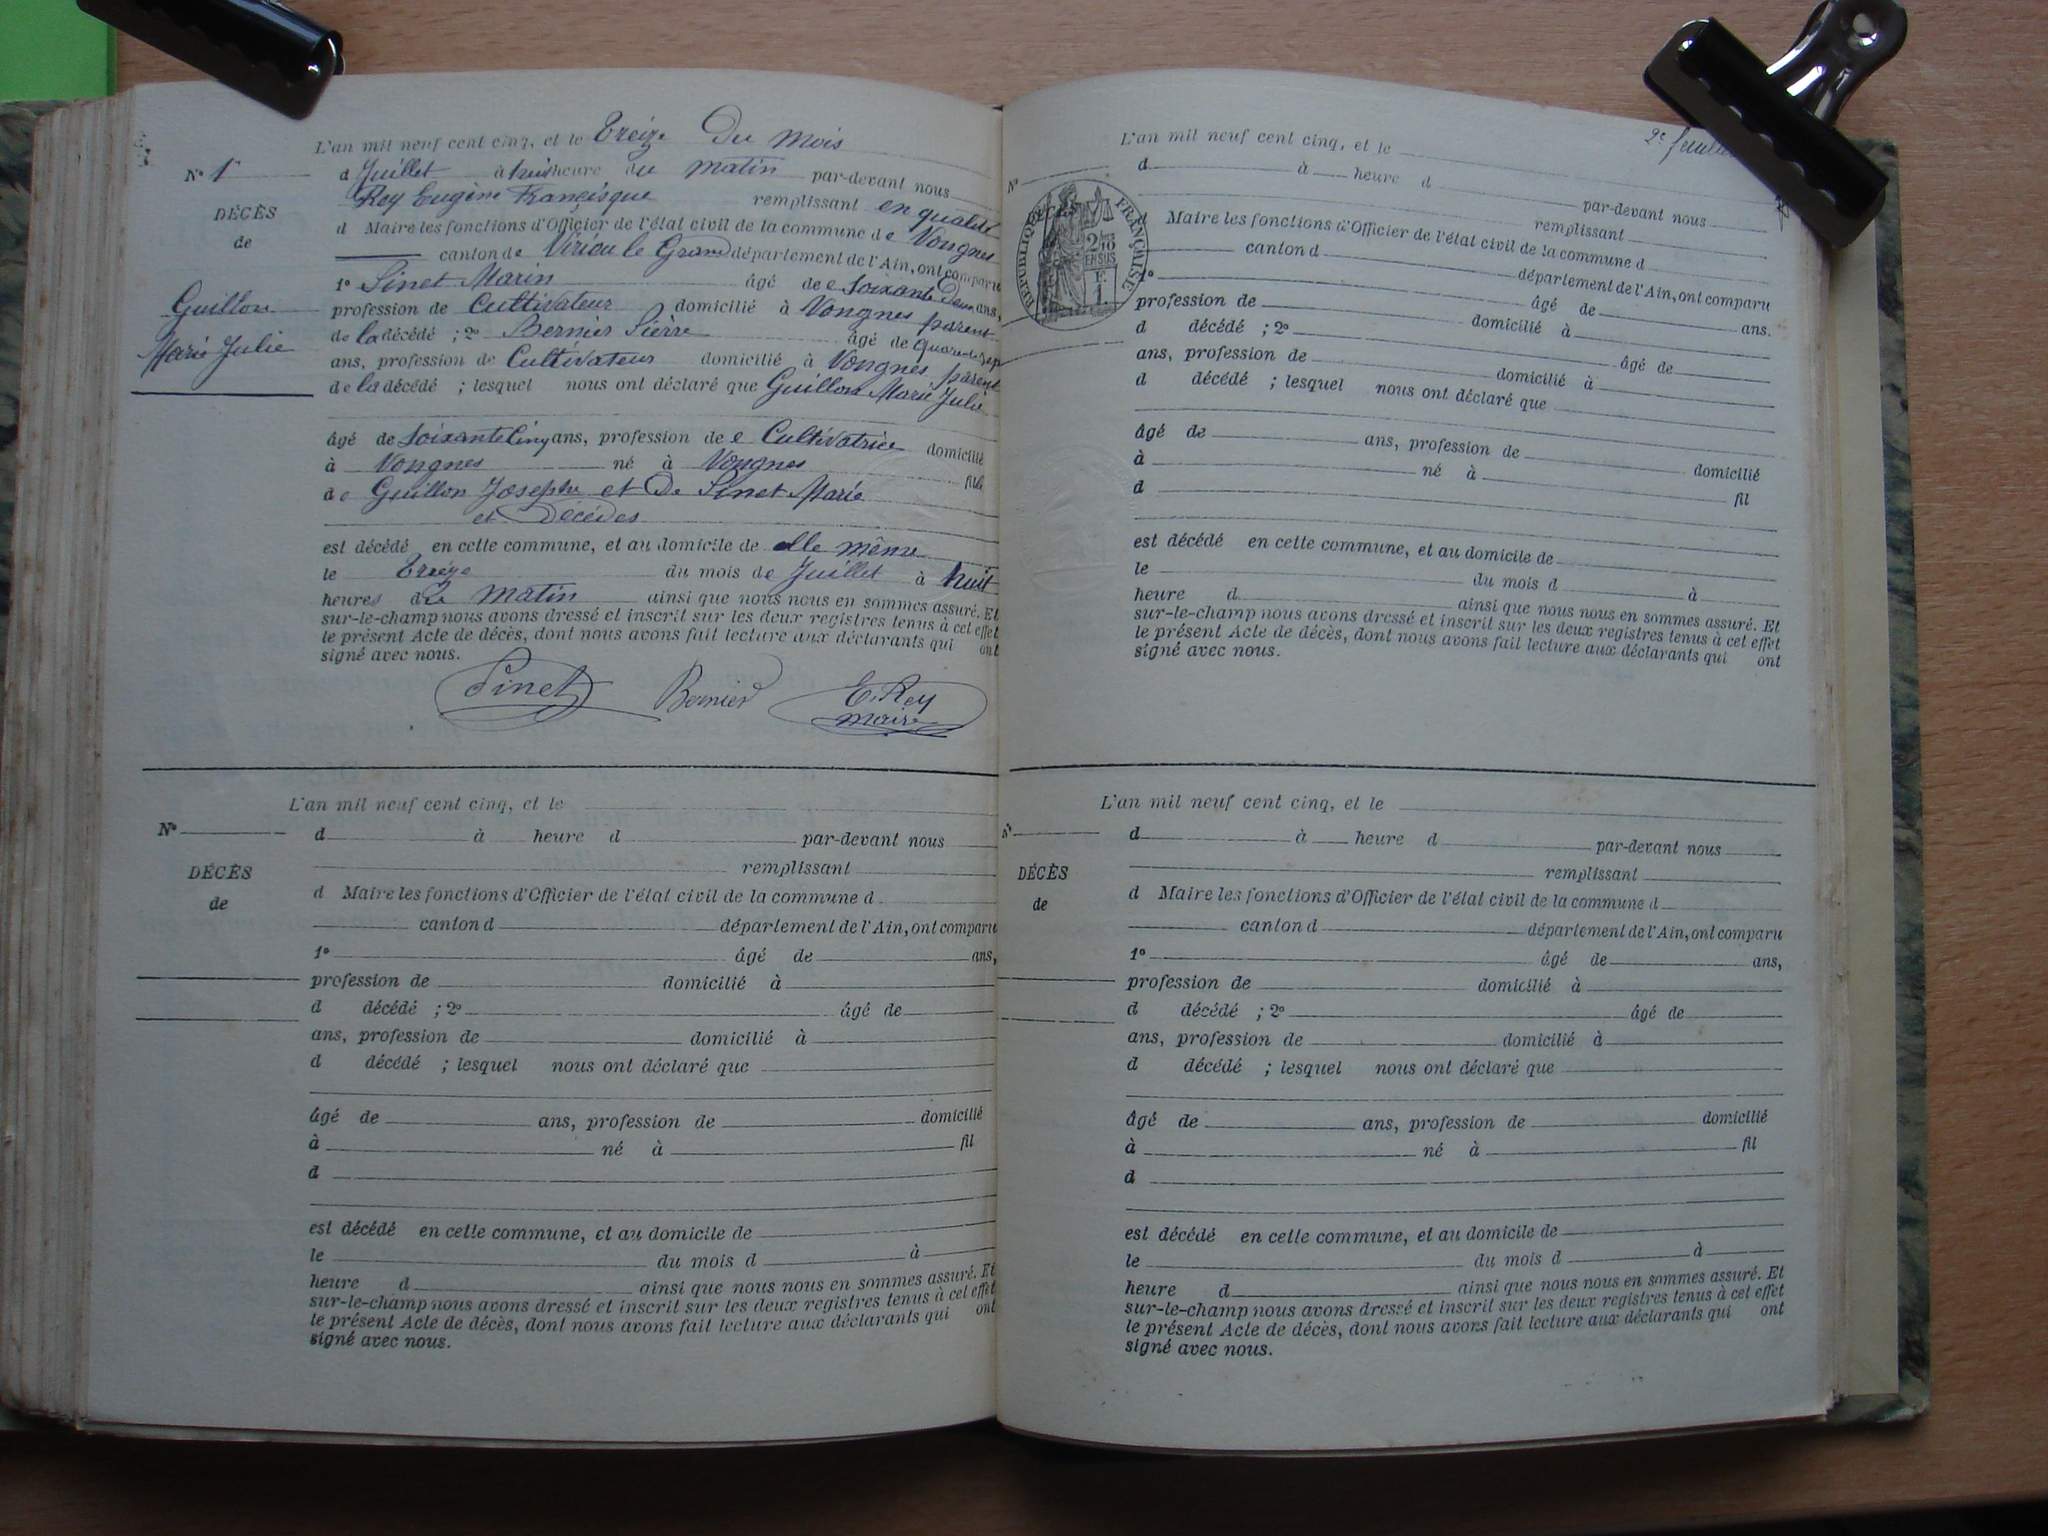 L'an mil neuf cent cinq, et le Treize Du Mois
N° 1er
d Juillet à huit heure du matin par-devant nous
Rey Eugène Francisque remplissant en qualité
DÉCÈS
de
Guillon
Marie Julie
d Maire les fonctions d'Officier de l'état civil de la commune de Vongnes
canton de Virieu le Grand département de l'Ain, ont comparu
1° Sinet Marin âgé de Soixante Deux ans,
profession de Cultivateur domicilié à Vongnes parent
de la décédé ; 2° Bernier Pierre âgé de
ans, profession de Cultivateur domicilié à Vongnes parent
de la décédé ; lesquel nous ont déclaré que Guillon Marie Julie
âgé de Soixante Cinq ans, profession de Cultivatrice domicilié
à Vongnes né à Vongnes fille
de Guillon Joseph et De Sinet Marie
et Décédés
est décédé en cette commune, et au domicile de elle même
le Treize du mois de Juillet à huit
heures du matin ainsi que nous nous en sommes assuré. Et
sur-le-champ nous avons dressé et inscrit sur les deux registres tenus à cet effet
le présent Acte de décès, dont nous avons fait lecture aux déclarants qui ont
signé avec nous.
Sinet Bernier E. Rey
maire
L'an mil neuf cent cinq, et le
N°
d à heure d par-devant nous
remplissant
DÉCÈS
de
d Maire les fonctions d'Officier de l'état civil de la commune d
canton d département de l'Ain, ont comparu
1° âgé de ans,
profession de domicilié à
d décédé ; 2° âgé de
ans, profession de domicilié à
d décédé ; lesquel nous ont déclaré que
âgé de ans, profession de domicilié
à né à fil
d
est décédé en cette commune, et au domicile de
le du mois d à
heure d ainsi que nous nous en sommes assuré. Et
sur-le-champ nous avons dressé et inscrit sur les deux registres tenus à cet effet
le présent Acte de décès, dont nous avons fait lecture aux déclarants qui ont
signé avec nous.
2e feuillet
L'an mil neuf cent cinq, et le
N°
d à heure d par-devant nous
remplissant
DÉCÈS
RÉPUBLIQUE FRANÇAISE
2/10
EN SUS
F.
1.
d Maire les fonctions d'Officier de l'état civil de la commune d
canton d département de l'Ain, ont comparu
1° âgé de ans.
profession de domicilié à
d décédé ; 2° âgé de
ans, profession de domicilié à
d décédé ; lesquel nous ont déclaré que
âgé de ans, profession de domicilié
à né à fil
d
est décédé en cette commune, et au domicile de
le du mois d à
heure d ainsi que nous nous en sommes assuré. Et
sur-le-champ nous avons dressé et inscrit sur les deux registres tenus à cet effet
le présent Acte de décès, dont nous avons fait lecture aux déclarants qui ont
signé avec nous.
L'an mil neuf cent cinq, et le
N°
d à heure d par-devant nous
remplissant
DÉCÈS
de
d Maire les fonctions d'Officier de l'état civil de la commune d
canton d département de l'Ain, ont comparu
1° âgé de ans,
profession de domicilié à
d décédé ; 2° âgé de
ans, profession de domicilié à
d décédé ; lesquel nous ont déclaré que
âgé de ans, profession de domicilié
à né à fil
d
est décédé en cette commune, et au domicile de
le du mois d à
heure d ainsi que nous nous en sommes assuré. Et
sur-le-champ nous avons dressé et inscrit sur les deux registres tenus à cet effet
le présent Acte de décès, dont nous avons fait lecture aux déclarants qui ont
signé avec nous.